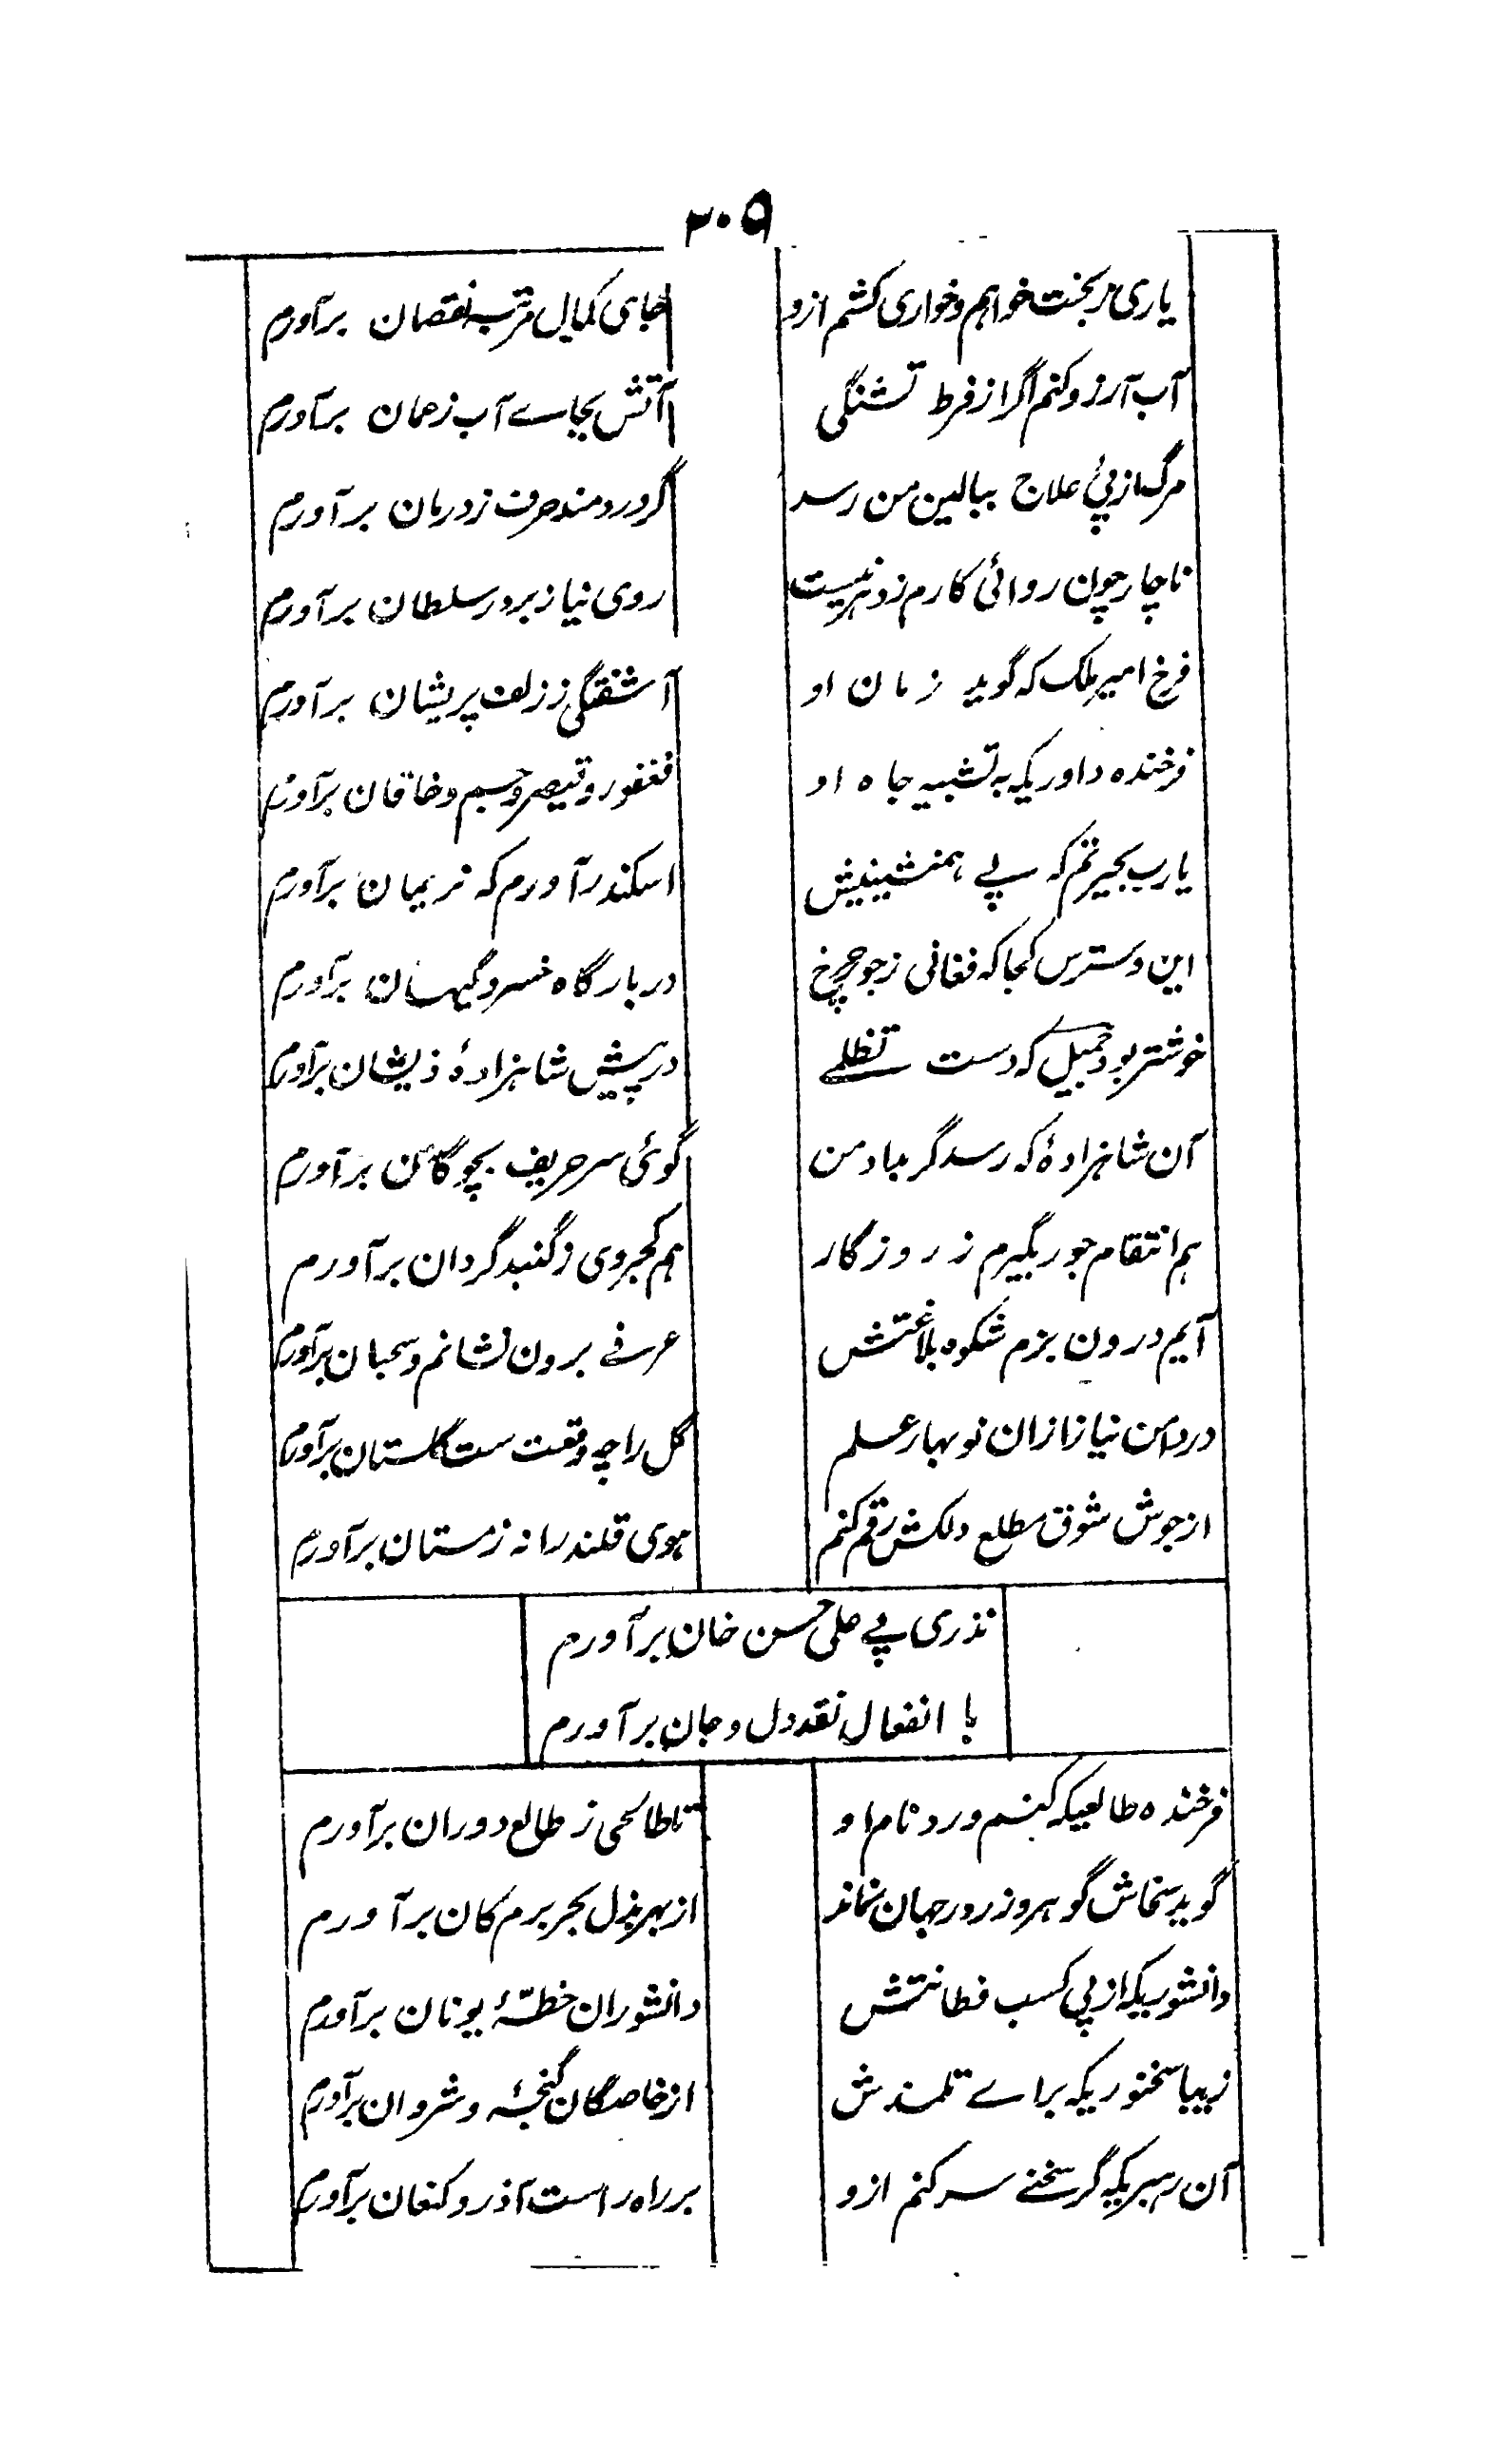 ۳۰۵
یاری ز بخت خواهم و خواری کشم ازو
جای کمال مرتبه نقصان برآورم
آب آرزو کنم اگر از فرط تشنگی
آتش بجاے آب ز عمان برآورم
مرگ از پئ علاج ببالین من رسد
گر دردمند حرف ز درمان برآورم
ناچار چون روائی کارم ز دهر نیست
روی نیاز بر در سلطان برآورم
فرخ امیر ملک که گوید زمان او
آشفتگی ز زلف پریشان برآورم
فرخنده داوریکه به تشبیه جاه او
فغفور و قیصر و جم و خاقان برآورم
یارب بحیرتم که پے همنشینیش
اسکندر آورم که نریمان برآورم
این دسترس کجا که فغانی ز جور چرخ
در بارگاه خسرو گیهان برآورم
خوشتر بود جمیل که دست تظلمے
در پیش شاهزادهٔ ذیشان برآورم
آن شاهزادهٔ که رسد گر بداد من
گوئی سر حریف بچوگان برآورم
هم انتقام جور بگیرم ز روزگار
هم کجروی ز گنبد گردان برآورم
آیم درون بزم شکوه بلاغتش
عرفے برون نشانم و سحبان برآورم
در دامن نیاز ازان نوبهار علم
گل را چه وقعت ست گلستان برآورم
از جوش شوق مطلع دلکش رقم کنم
هوی قلندرانه ز مستان برآورم
نذری پے علی حسن خان برآورم
با انفعال نقد دل و جان برآورم
فرخنده طالعیکه کنم ورد نام او
تا طالحی ز طالع دوران برآورم
گوید سخاش گوهر و زر در جهان نماند
از بهر بذل بحر برم کان برآورم
دانشوریکه از پی کسب فطانتش
دانشوران خطّهٔ یونان برآورم
زیبا سخنوریکه براے تلمذش
از خاصگان گنجهٔ و شروان برآورم
آن رهبریکه گر سخنے سر کنم ازو
بر راه راست آذر و کنعان برآورم